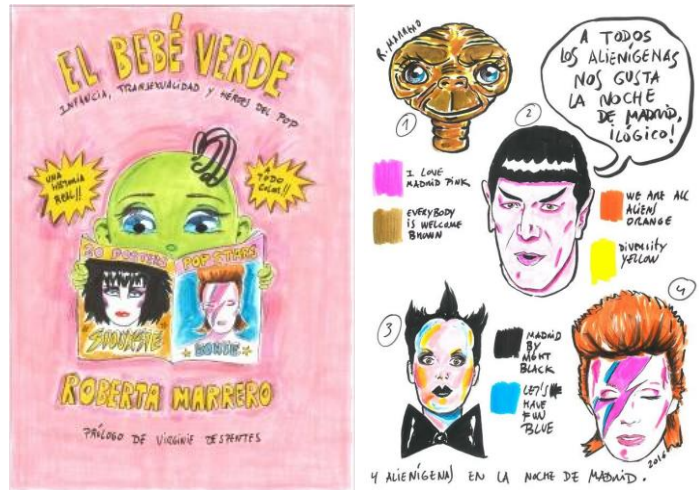 EL BEBÉ VERDE
INFANCIA, TRANSEXUALIDAD Y HÉROES DEL POP
UNA
HISTORIA
REAL!!
A
TODO
COLOR!!
20 POSTERS
POP STARS
SIOUXSIE
BOWIE
ROBERTA MARRERO
PRÓLOGO DE VIRGINIE DESPENTES
R. MARRERO
A TODOS
LOS ALIENÍGENAS
NOS GUSTA
LA NOCHE
DE MADRID,
¡LÓGICO!
1
2
I LOVE
MADRID PINK
EVERYBODY
IS WELCOME
BROWN
WE ARE ALL
ALIENS
ORANGE
DIVERSITY
YELLOW
3
4
MADRID
BY
NIGHT
BLACK
LET'S
HAVE
FUN
BLUE
2016
4 ALIENÍGENAS EN LA NOCHE DE MADRID.